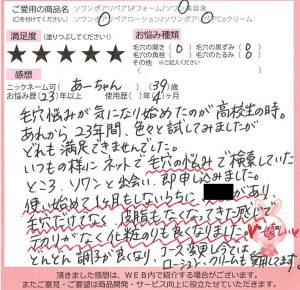 ご愛用の商品名 ソワンポアリペアSPフォーム/ソワン 美容液
(○を付けてください) ソワンポアリペアローション/ソワンポアリペアCcクリーム
満足度(塗りつぶしてください!) お悩み種類
★★★★★
毛穴の開き( ) 毛穴の黒ずみ( )
毛穴の角栓( ) 毛穴のたるみ( )
その他 ※ご記入ください
感想
ニックネーム可( あーちゃん )(39)歳
お悩み歴(23)年以上 使用歴( )年( )ヶ月
毛穴悩みが気になり始めたのが高校生の時。
あれから23年間、色々と試してみましたが
どれも満足できませんでした。
いつもの様にネットで毛穴の悩みで検索していた
ところ、ソワンと出会い、即申し込みました。
使い始めて1ヶ月もしないうちに があり、
毛穴だけでなく皮脂もなくなってきた感じで
テカリがなく化粧のりも良くなりました。
どんどん調子が良くなり、コース変更し今では
ローション、クリームも愛用してます。
嬉しい
頂きました感想は、WEB内で紹介する場合がございます。
またご意見・ご要望は商品開発・サービス向上に役立てさせていただきます。